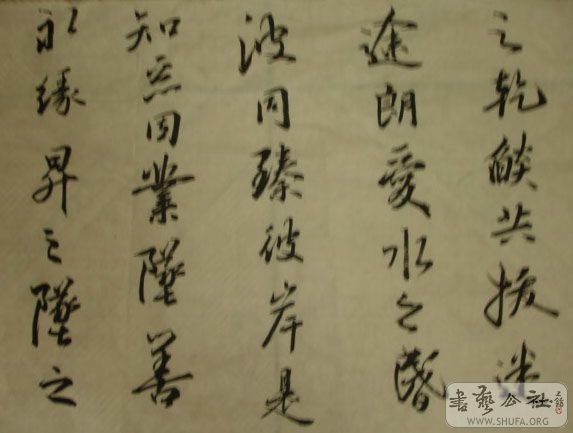 之乾燄共拔迷
途朗愛水之昬
波同臻彼岸是
知惡因業墜善
以緣昇々墜之
書藝公社
WWW.SHUFA.ORG